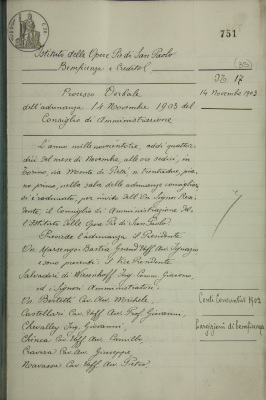 751
Istituto delle Opere Pie di San Paolo
Beneficenza e Credito
(33)
N. 17
14 Novembre 1903
Processo Verbale
dell'adunanza 14 Novembre 1903 del
Consiglio di Amministrazione
L'anno millenovecentotre, addì quattor-
dici del mese di Novembre, alle ore sedici, in
Torino, via Monte di Pietà, n. trentadue, pia-
no primo, nella sala delle adunanze consigliari
si è radunato, per invito dell' Ill. Signor Presi-
dente, il Consiglio di Amministrazione del-
l'Istituto delle Opere Pie di San Paolo.
Presiede l'adunanza il Presidente
Marsengo Bastia Grand'Uff. Avv. Ignazio
e sono presenti: il Vice Presidente
Salvadori di Wiesenhoff Ing. Comm. Giacomo,
ed i Signori Amministratori:
Cav. Avv. Michele,
Castellari Cav. Uff. Avv. Prof. Giovanni,
Chevalley Ing. Giovanni,
Cav. Uff. Avv. Camillo,
Cravera Cav. Avv. Giuseppe
Cav. Uff. Avv. Pietro,
Conti Consuntivi 1902
Elargizioni di beneficenza